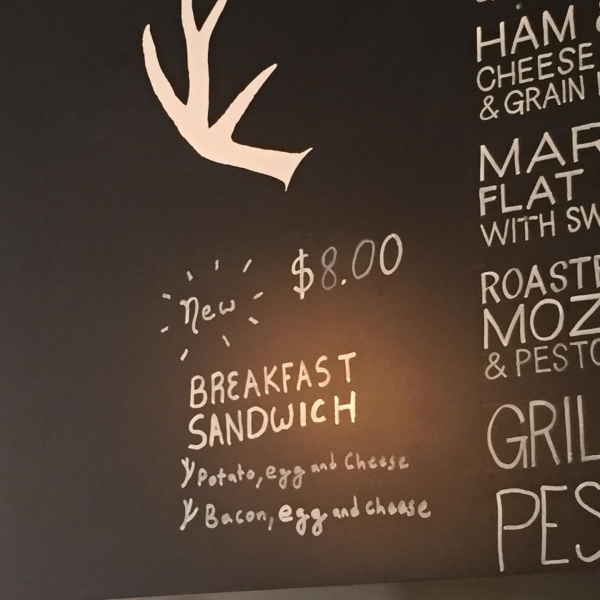 New
$8.00
BREAKFAST
SANDWICH
Potato, egg and Cheese
Bacon, egg and cheese
HAM &
CHEESE
& GRAIN
FLAT
WITH
& PESTO